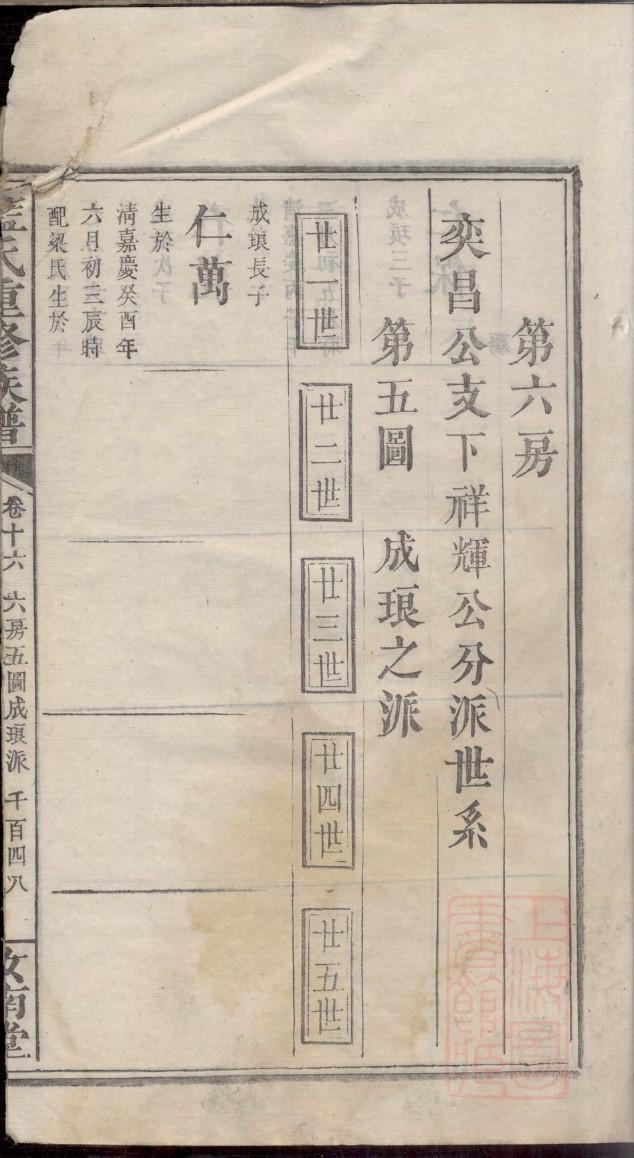 第六房
奕昌公支下祥輝公分派世系
第五圖　成琅之派
廿一世
廿二世
廿三世
廿四世
廿五世
成琅長子
仁萬
生於
清嘉慶癸酉年
六月初三辰時
配梁氏生於
藍氏重修族譜
卷十六　六房五圖成琅派　千百四八
汝南堂